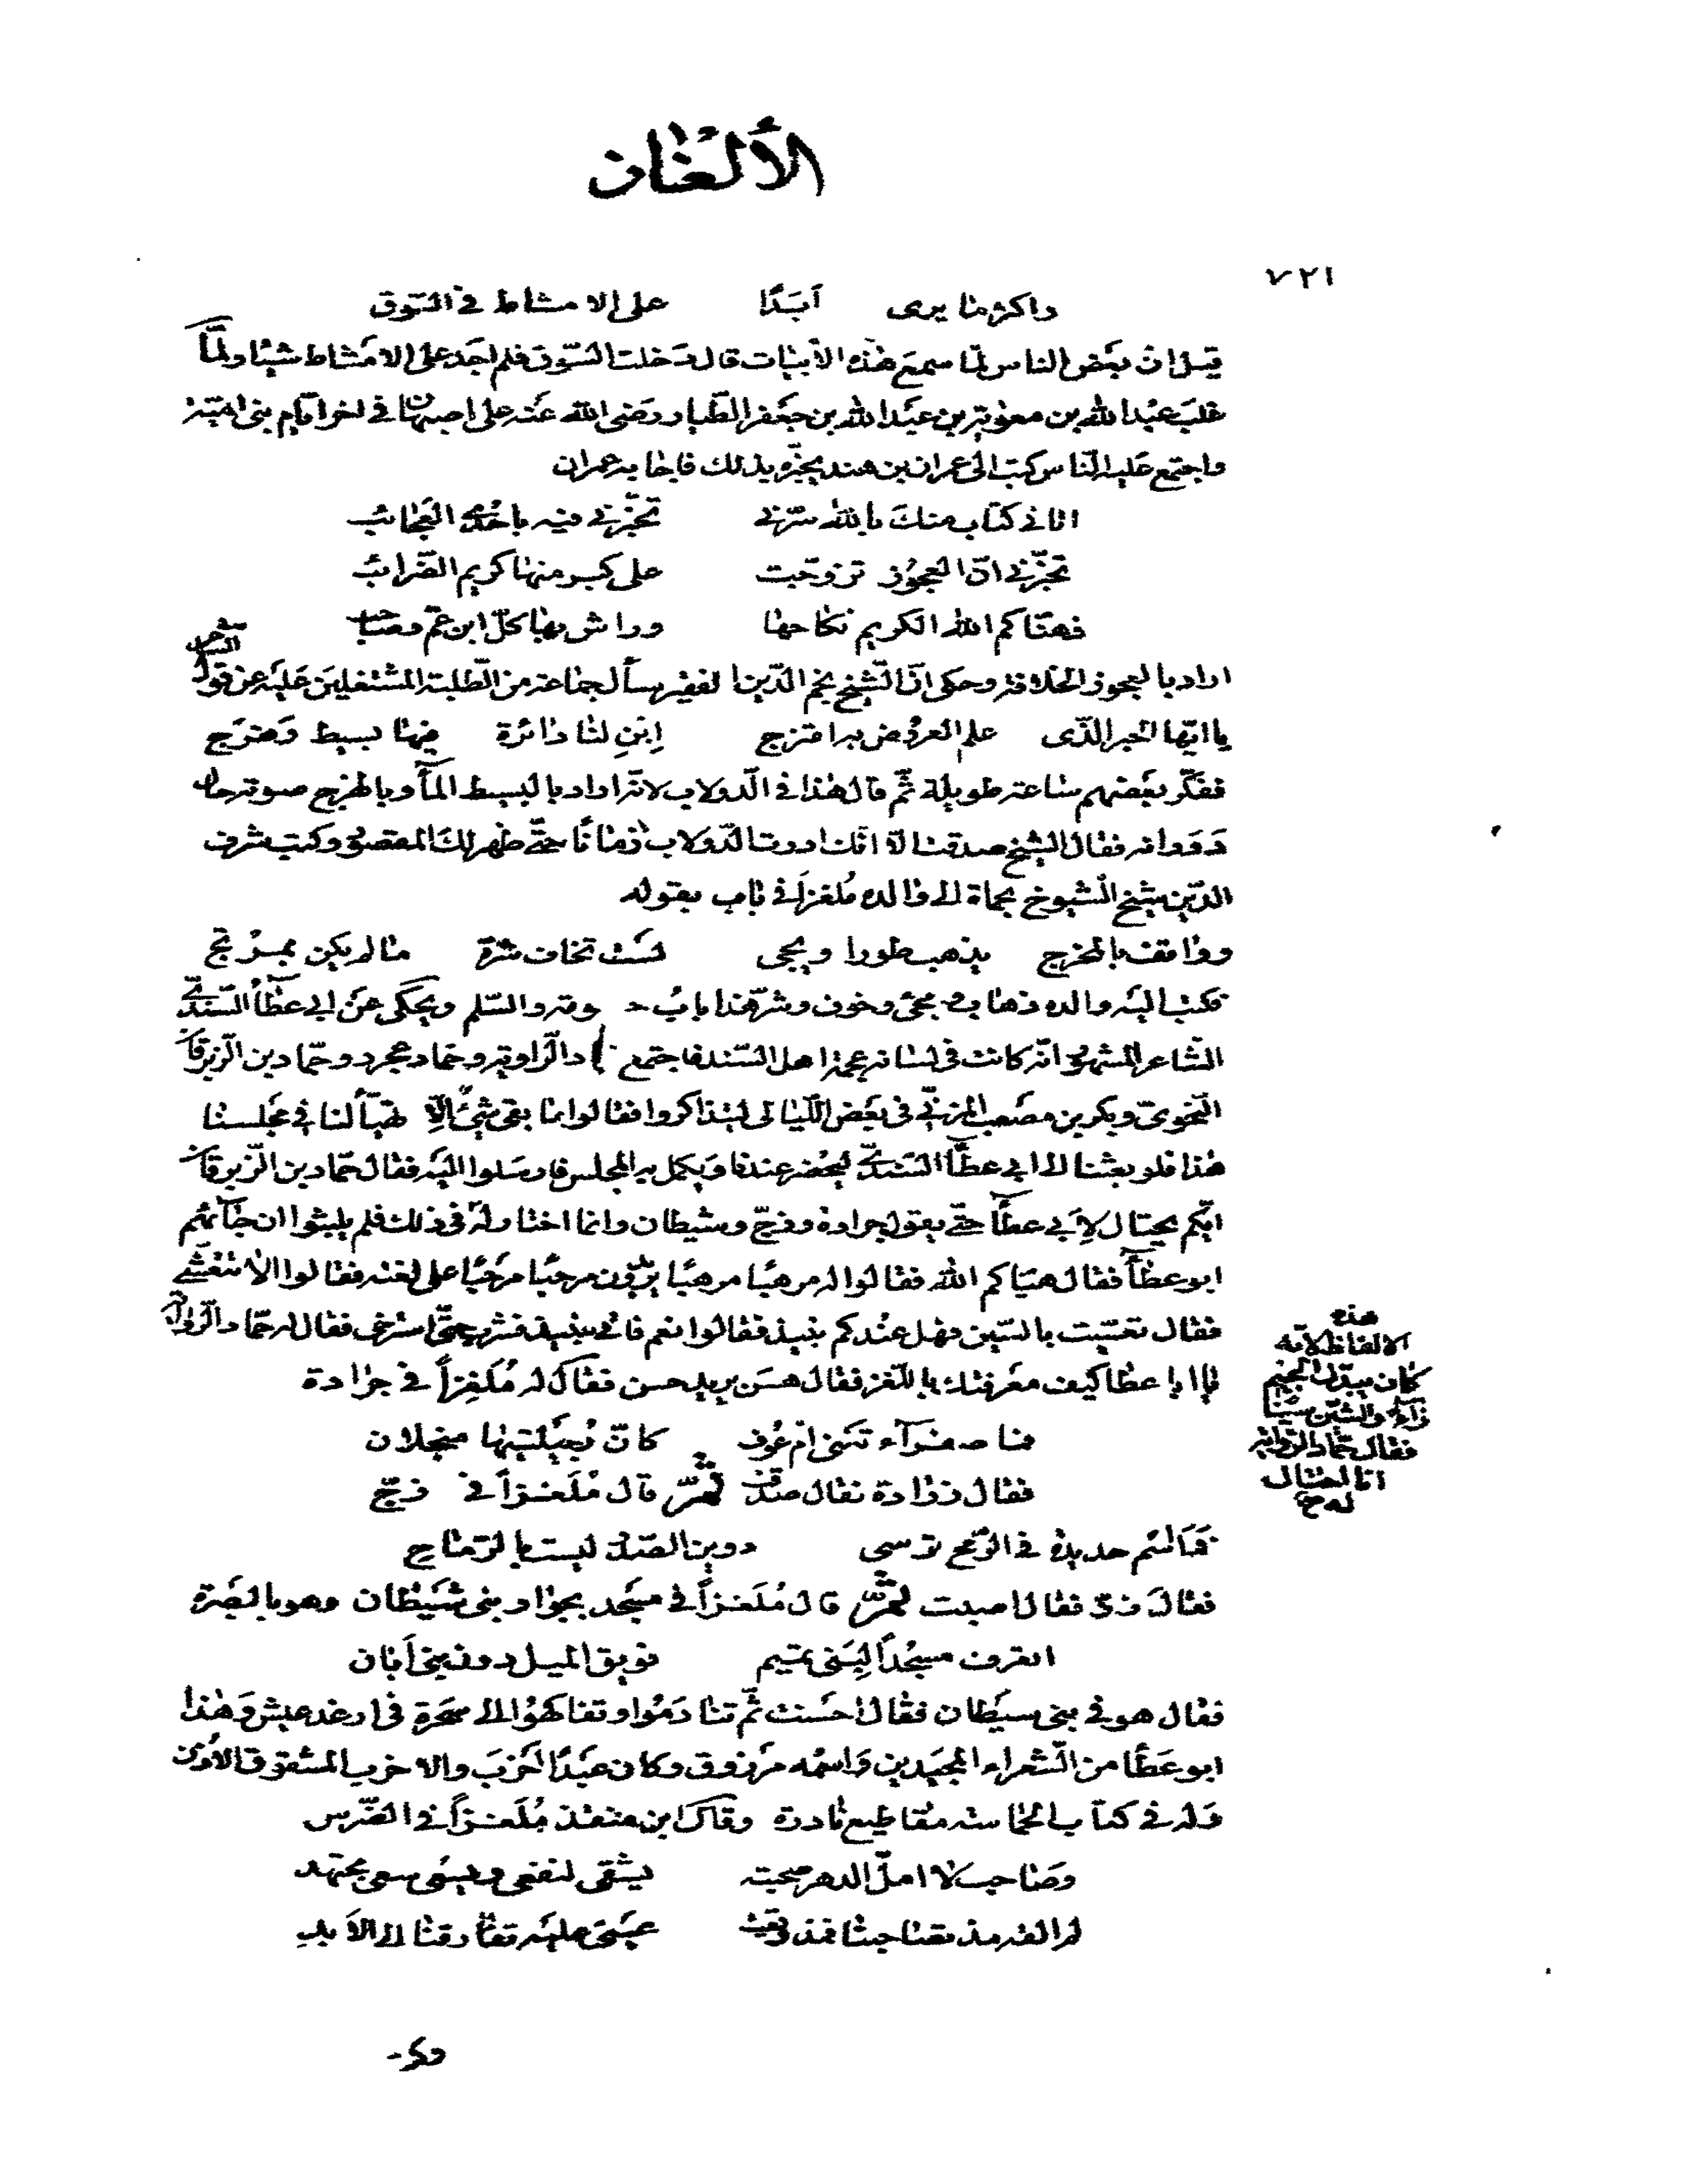 الألغاز
٧٢١
واكثر ما يرى أبَدًا على الامشاط في السّوق
قيل ان بعض الناس لمّا سمع هذه الأبيات قال دخلت السّوق فلم اجد على الامشاط شيئا ولمّا
غلب عبد الله بن معوية بن عبد الله بن جعفر الطّيار رضى الله عنه على اصبهان في اخر ايام بنى اميّة
واجتمع عليه النّاس كتب الى عمران بن هند يخبره بذلك فاجابه عمران
اتانى كتاب منك بالله سرّنى تخبّرنى فيه باحدى العجائب
تخبّرنى انّ العجوز تزوجت على كبر منها كريم الضرائب
فهنّاكم الله الكريم نكاحها وراش بها كلّ ابن عمّ وصاحب
اراد بالعجوز الخلافة وحكى انّ الشّيخ نجم الدّين القفير سأل جماعة من الطّلبة المشتغلين عليه عن قول
يا ايّها الحبر الّذى علم العروض به امتزج ابن لنا دائرة فيها بسيط وهزج
ففكّر بعضهم ساعة طويلة ثمّ قال هذا في الدّولاب لانّه اراد بالبسيط المآء وبالهزج صوته حال
دَوَرانه فقال الشّيخ صدقت الّا انّك ادرت الدّولاب زمانًا حتّى ظهر لك المقصود وكتب شرف
الدّين شيخ الشّيوخ بحماة الى والده مُلغزاً في باب بقوله
وواقف بالمخرج يذهب طورا ويجى لست تخاف شرّه ما لم يكن بمرتج
فكتب اليه والده ذهاب ومجئ وخوف وشرّ هذا باب والسّلم ويحكى عن ابى عطآء السّندىّ
الشّاعر المشهور انّه كانت في لسانه عجمة اهل السّند فاجتمع حماد الرّاوية وحماد عجرد وحمّاد بن الزّبرقان
النّحوىّ وبكر بن مصعب المزنىّ في بعض اللّيالى ليتذاكروا فقالوا ما بقى شئ الّا تهيّأ لنا في مجلسنا
هذا فلو بعثنا الى ابى عطآء السّندىّ ليحضر عندنا ويكمل به المجلس فارسلوا اليه فقال حمّاد بن الزّبرقان
ايّكم يحتال لأبى عطآء حتّى يقول جرادة وزجّ وشيطان وانما اختار له في ذلك فلم يلبثوا ان جآئهم
ابو عطآء فقال هيّاكم الله فقالوا له مرهبًا مرهبًا يريدون مرحبًا مرحبًا على لغته فقالوا الا تتعشّى
فقال تعسّيت بالسّين فهل عندكم نبيذ فقالوا نعم فاتى بنبيذ فشرب حتّى استرخى فقال له حمّاد الرّاوية
يا ابا عطا كيف معرفتك باللّغز فقال هسن يريد حسن فقال له مُلغزاً في جرادة
فما صفرآء تكنى امّ عوف كانّ رجيلتيها منجلان
فقال زرادة فقال صدقت ثمّ قال مُلغزاً في زجّ
فما اسم حديدة في الرّمح ترسى دوين الصّدر ليست بالرّماح
فقال ززّ فقال اصبت ثمّ قال مُلغزاً في مسجد بجوار بنى شيطان وهو بالبصرة
اتعرف مسجداً لبنى تميم فويق الميل دون بنى أبان
فقال هو في بنى سيطان فقال احسنت ثمّ تنادموا وتفاكهوا الى سحرة في ارغد عيش وهذا
ابو عَطا من الشّعراء المجيدين واسمه مرزوق وكان عبدًا اخرب والاخرب المشقوق الأذن
وله في كتاب الحماسة مقاطيع نادرة وقال ابن منقذ مُلغزاً في الضّرس
وصاحب لا امل الدهر صحبته يشقى لنفعى ويسعى سعى مجتهد
لم القه مذ تصاحبنا فمذ وقعت عينى عليه تفارقنا الى الأبد
هذه
الالفاظ لانه
كان يبدّل الجيم
زاء والشين سينا
فقال حماد الرّاوية
انا احتال
له صح
وكـ